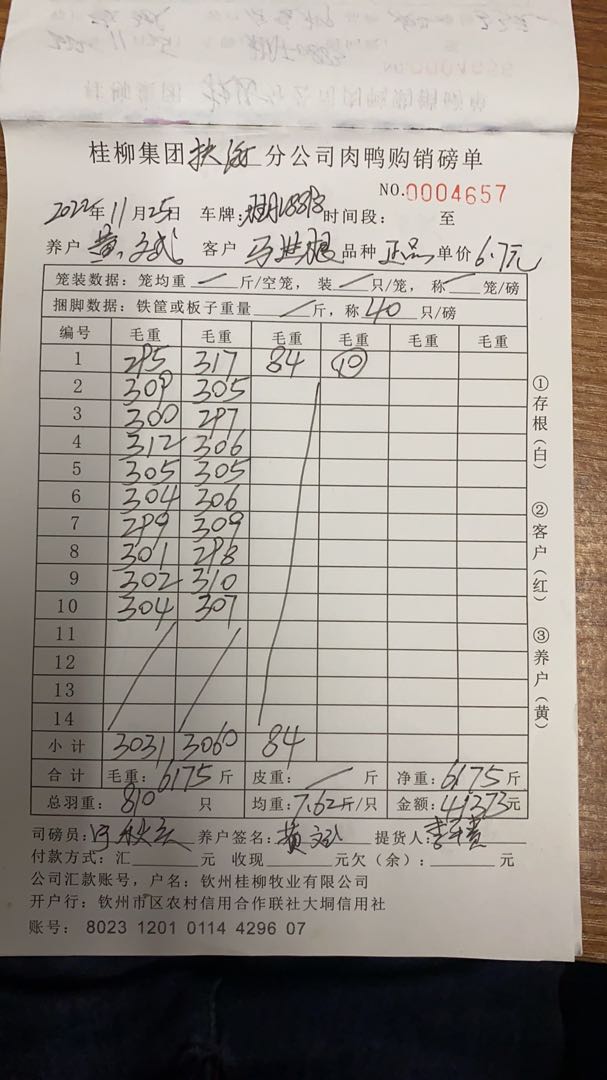 桂柳集团 分公司肉鸭购销磅单
NO.0004657
2022年11月25日 车牌: 时间段: 至
养户 黄 客户 马进根 品种 正品 单价 6.7元
笼装数据: 笼均重 / 斤/空笼, 装 / 只/笼, 称 / 笼/磅
捆脚数据: 铁筐或板子重量 / 斤, 称 40 只/磅
编号 毛重 毛重 毛重 毛重 毛重 毛重
1 295 317 84 ⑩
2 309 305
3 300 297
4 312 306
5 305 305
6 304 306
7 299 309
8 301 298
9 302 310
10 304 307
11
12
13
14
小计 3031 3060 84
合计 毛重: 6175 斤 皮重: / 斤 净重: 6175 斤
总羽重: 810 只 均重: 7.62斤/只 金额: 41373元
司磅员: 养户签名: 黄 提货人:
付款方式: 汇 元 收现 元欠(余): 元
公司汇款账号, 户名: 钦州桂柳牧业有限公司
开户行: 钦州市区农村信用合作联社大垌信用社
账号: 8023 1201 0114 4296 07
①存根(白)
②客户(红)
③养户(黄)